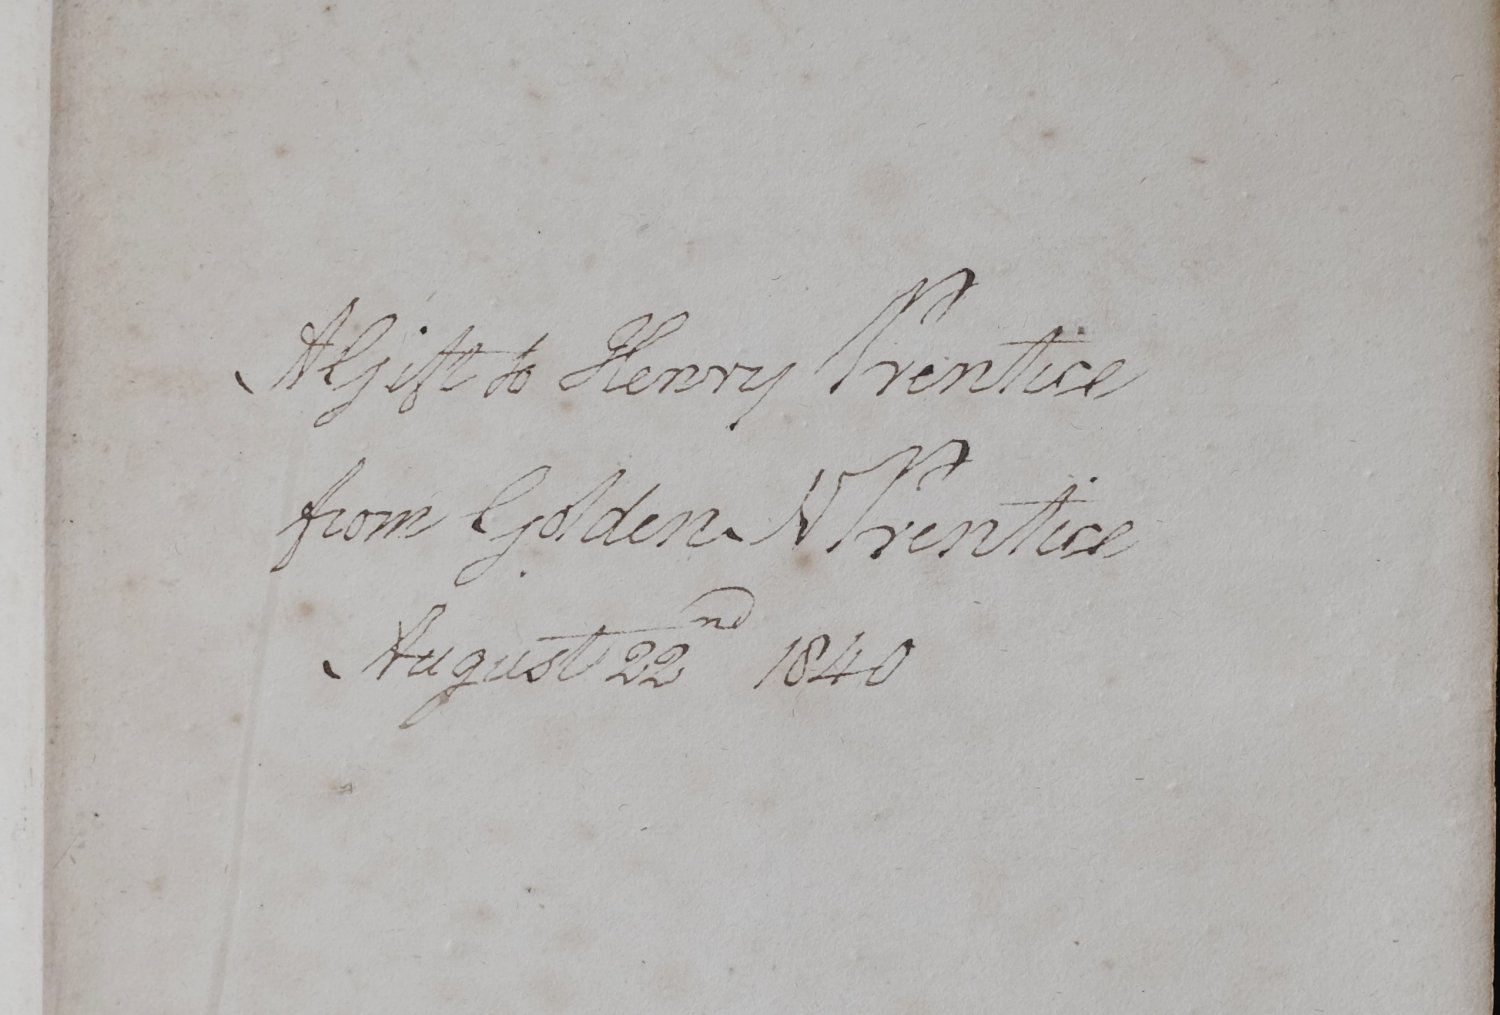 A Gift to Henry Prentice
from Golden N Prentice
August 22nd 1840